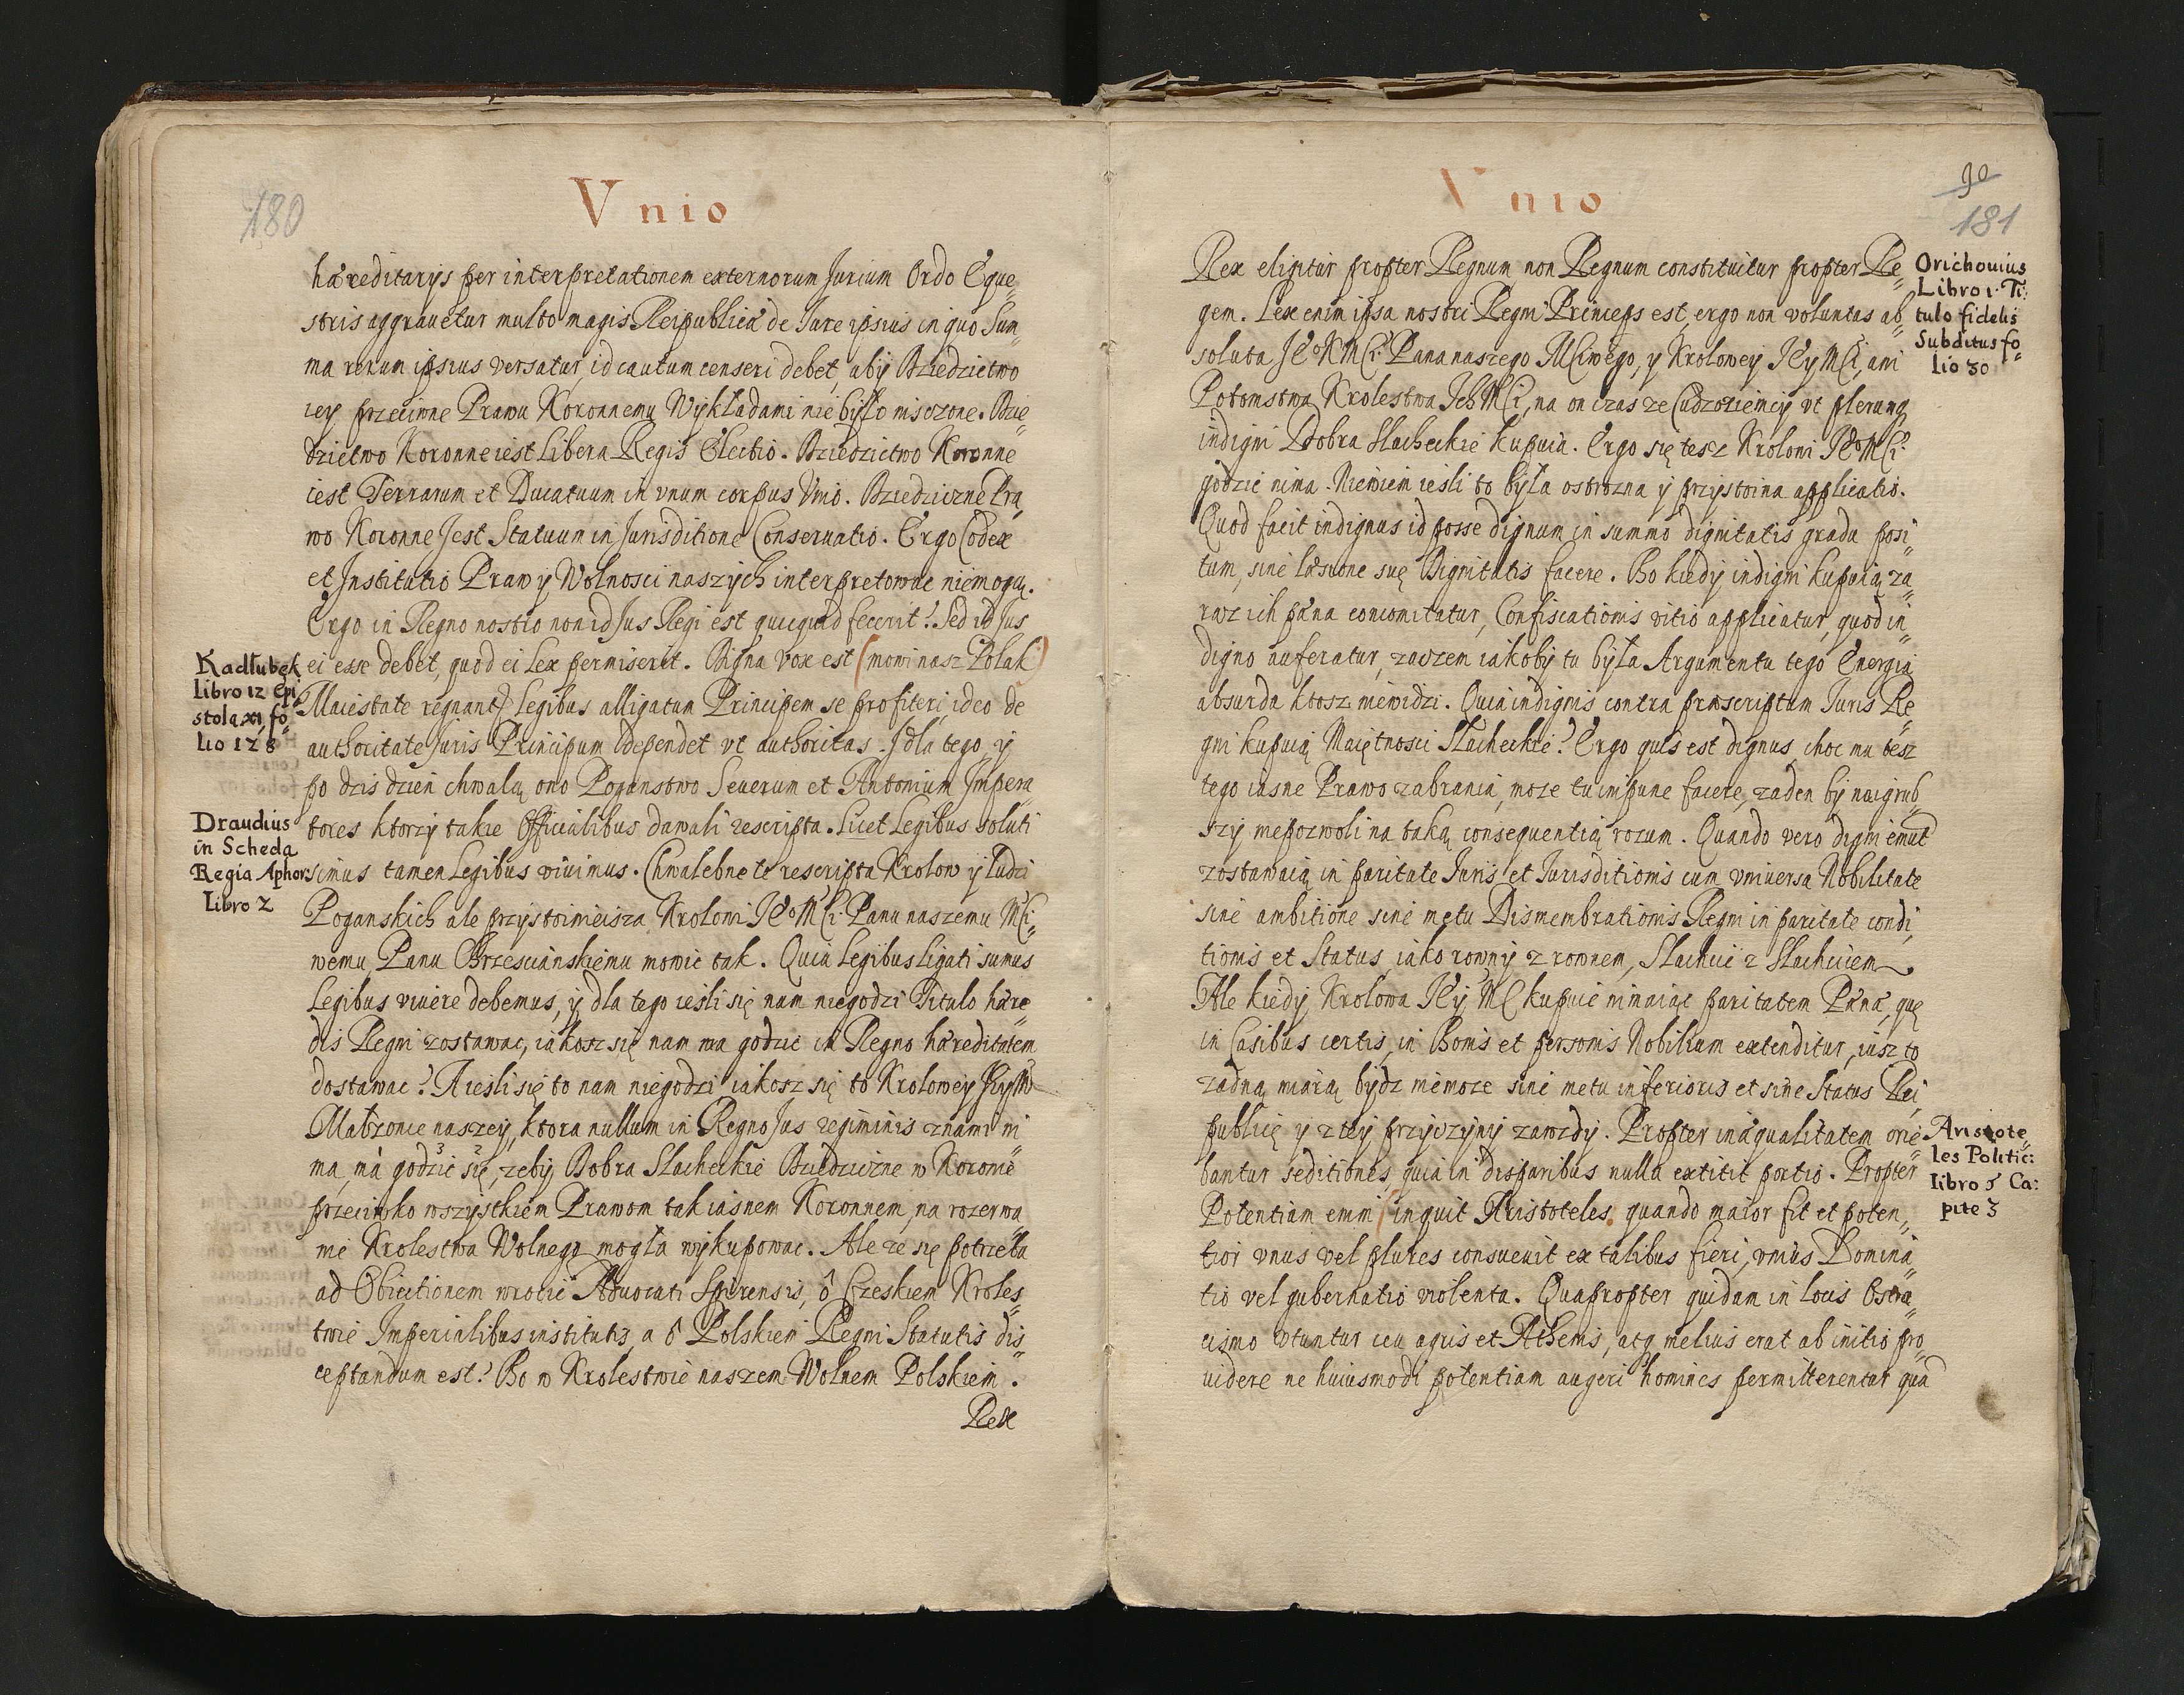 180
Vnio
hæreditarijs per interpretationem externorum Jurium Ordo Eque„
stris aggrauetur multo magis Reipublicæ de Iure ipsius in quo Sum
ma rerum ipsius versatur, id cautum censeri debet, aby Dziedzictwo
iey przeciwne Prawu Koronnemu Wykładami nie było niszczone. Dzie„
dzictwo Koronne iest Libera Regis Electio. Dziedzictwo Koronne
iest Terrarum et Ducatuum in vnum corpus Vnio. Dziedziczne Pra„
wo Koronne Jest Statuum in Jurisditione Conseruatio. Ergo Codex
et Institutio Praw y Wolnosci naszych interpretowac niemogą.
Ergo in Regno nostro non id Jus Regi est quicquid fecerit? Sed id Jus
ei esse debet, quod ei Lex permiserit. Digna vox est (mowi nasz Polak)
Maiestate regnantis Legibus alligatum Principem se profiteri, ideo de
authoritate Juris Principum dependet vt authoritas. J dla tego y
po dzis dzien chwalą ono Poganstwo Seuerum et Antonium Impera„
tores ktorzy takie Officialibus dawali rescripta. Licet Legibus soluti
simus tamen Legibus viuimus. Chwalebne te rescripta Krolow y ludzi
Poganskich ale przystoinieisza Krolowi Je͡o MCi Panu naszemu MCi„
wemu, Panu Chrzescianskiemu mowic tak. Quia Legibus Ligati sumus
Legibus viuere debemus, y dla tego iesli się nam niegodzi Titulo hære„
dis Regni zostawac, iakosz się nam ma godzic in Regno hæreditatem
dostawac? A iesli się to nam niegodzi iakosz się to Krolowey Jeym
Małzonce naszey, ktora nullum in Regno Jus regiminis znami ni
ma, ma godzic się, zeby Dobra Slacheckie Dziedziczne w Koronie
przeciwko wszystkiem Prawom tak iasnem Koronnem, na rozerwa„
nie Krolestwa Wolnego mogła wykupowac. Ale ze się potrzeba
ad Obiectionem wrocic Aduocati Spirensis, o Czeskiem Kroles„
twie Imperialibus institutis, a o Polskiem Regni Statutis dis„
ceptandum est? Bo w Krolestwie naszem Wolnem Polskiem.
Rex
Kadłubek
libro 12 Epi„
stola xi, fo„
lio 128
Draudius
in Scheda
Regia Aphor:
Libro 2
90
181
Vnio
Rex eligitur propter Regnum non Regnum constituitur propter Re„
gem. Lex enim ipsa nostri Regni Princeps est, ergo non voluntas ab„
soluta Je͡o K MCi Pana naszego MCiwego, y Krolowey JEy MCi, ani
Potomstwa Krolestwa Ich MCi, na on czas ze Cudzoziemcy vt plerunq
indigni Dobra Slacheckie kupuią. Ergo się tesz Krolowi Je͡o MCi
godzic nima. Niewiem iesli to była ostrozna y przystoina applicatio.
Quod facit indignus id posse dignum in summo dignitatis gradu posi„
tum, sine læsione suę Dignitatis facere. Bo kiedy indigni kupuią za„
raz ich pæna concomitatur, Confiscationis vitio applicatur, quod in„
digno auferatur, zaczem iakoby tu była Argumentu tego Energia
absurda ktosz niewidzi. Quia indignis contra præscriptum Iuris Re„
gni kupuią Maiętnosci Slacheckie? Ergo quis est dignus, choc mu tesz
tego iasne Prawo zabrania, moze tu impune facere, zaden by naigrub„
szy niepozwoli na taką consequentią rozum. Quando vero digni emut
zostawaią in paritate Juris et Jurisditionis cum vniuersa Nobilitate
sine ambitione sine metu Dismembrationis Regni in paritate condi„
tionis et Status, iako rowny z rownem, Slachcic z Slachcicem
Ale kiedy Krolowa JEy MC kupuie nimaiac paritatem Pænæ, quę
in Casibus certis, in Bonis et personis Nobilium extenditur, iusz to
zadną miarą bydz niemoze sine metu inferioris et sine Status Rei
publicę y z tey przyczyny zawzdy. Propter inæqualitatem orie„
bantur seditiones, quia in disparibus nulla extitit portio. Propter
Potentiam enim (inquit Aristoteles) quando maior fit et poten„
tior vnus vel plures consueuit ex talibus fieri, vnius Domina„
tio vel gubernatio violenta. Quapropter quidam in locis Ostra„
cismo vtuntur ceu agris et Athenis, atq melius erat ab initio pro„
uidere ne huiusmodi potentiam augeri homines permitterentur qua
Orichouius
Libro 1. Ti:
tulo fidelis
Subditus fo„
lio 30
Aristote„
les Politic:
libro 5 Ca:
pite 3